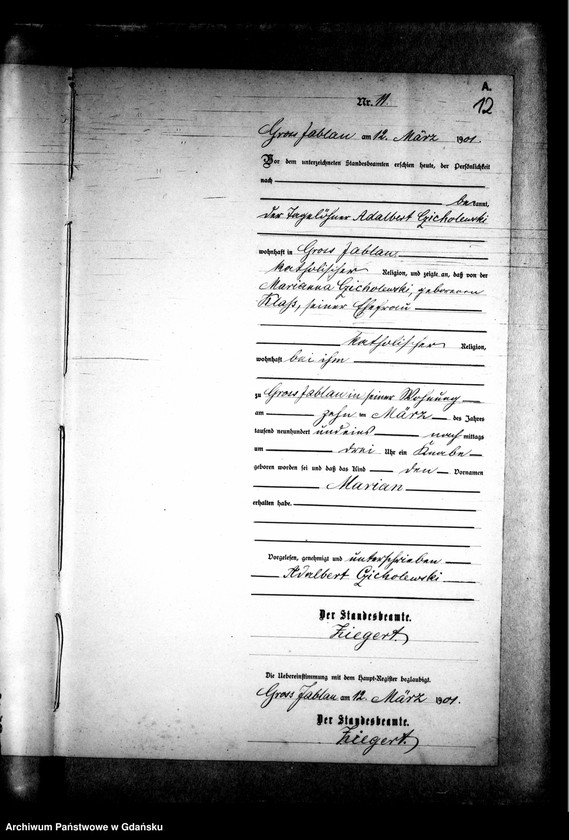 A.
12
Nr. 11.
Gross Jablau am 12. März 1901.
Vor dem unterzeichneten Standesbeamten erschien heute, der Persönlichkeit
nach
bekannt,
der Tagelöhner Adalbert Czicholewski
wohnhaft in Gross Jablau
katholischer Religion, und zeigte an, daß von der
Marianna Czicholewski, geborenen
Klaß, seiner Ehefrau
katholischer Religion,
wohnhaft bei ihm
zu Gross Jablau in seiner Wohnung
am zehn ten März des Jahres
tausend neunhundert und eins nach mittags
um drei Uhr ein Knabe
geboren worden sei und daß das Kind den Vornamen
Marian
erhalten habe.
Vorgelesen, genehmigt und unterschrieben
Adalbert Czicholewski
Der Standesbeamte.
Ziegert
Die Uebereinstimmung mit dem Haupt-Register beglaubigt.
Gross Jablau am 12. März 1901.
Der Standesbeamte.
Ziegert.
Archiwum Państwowe w Gdańsku